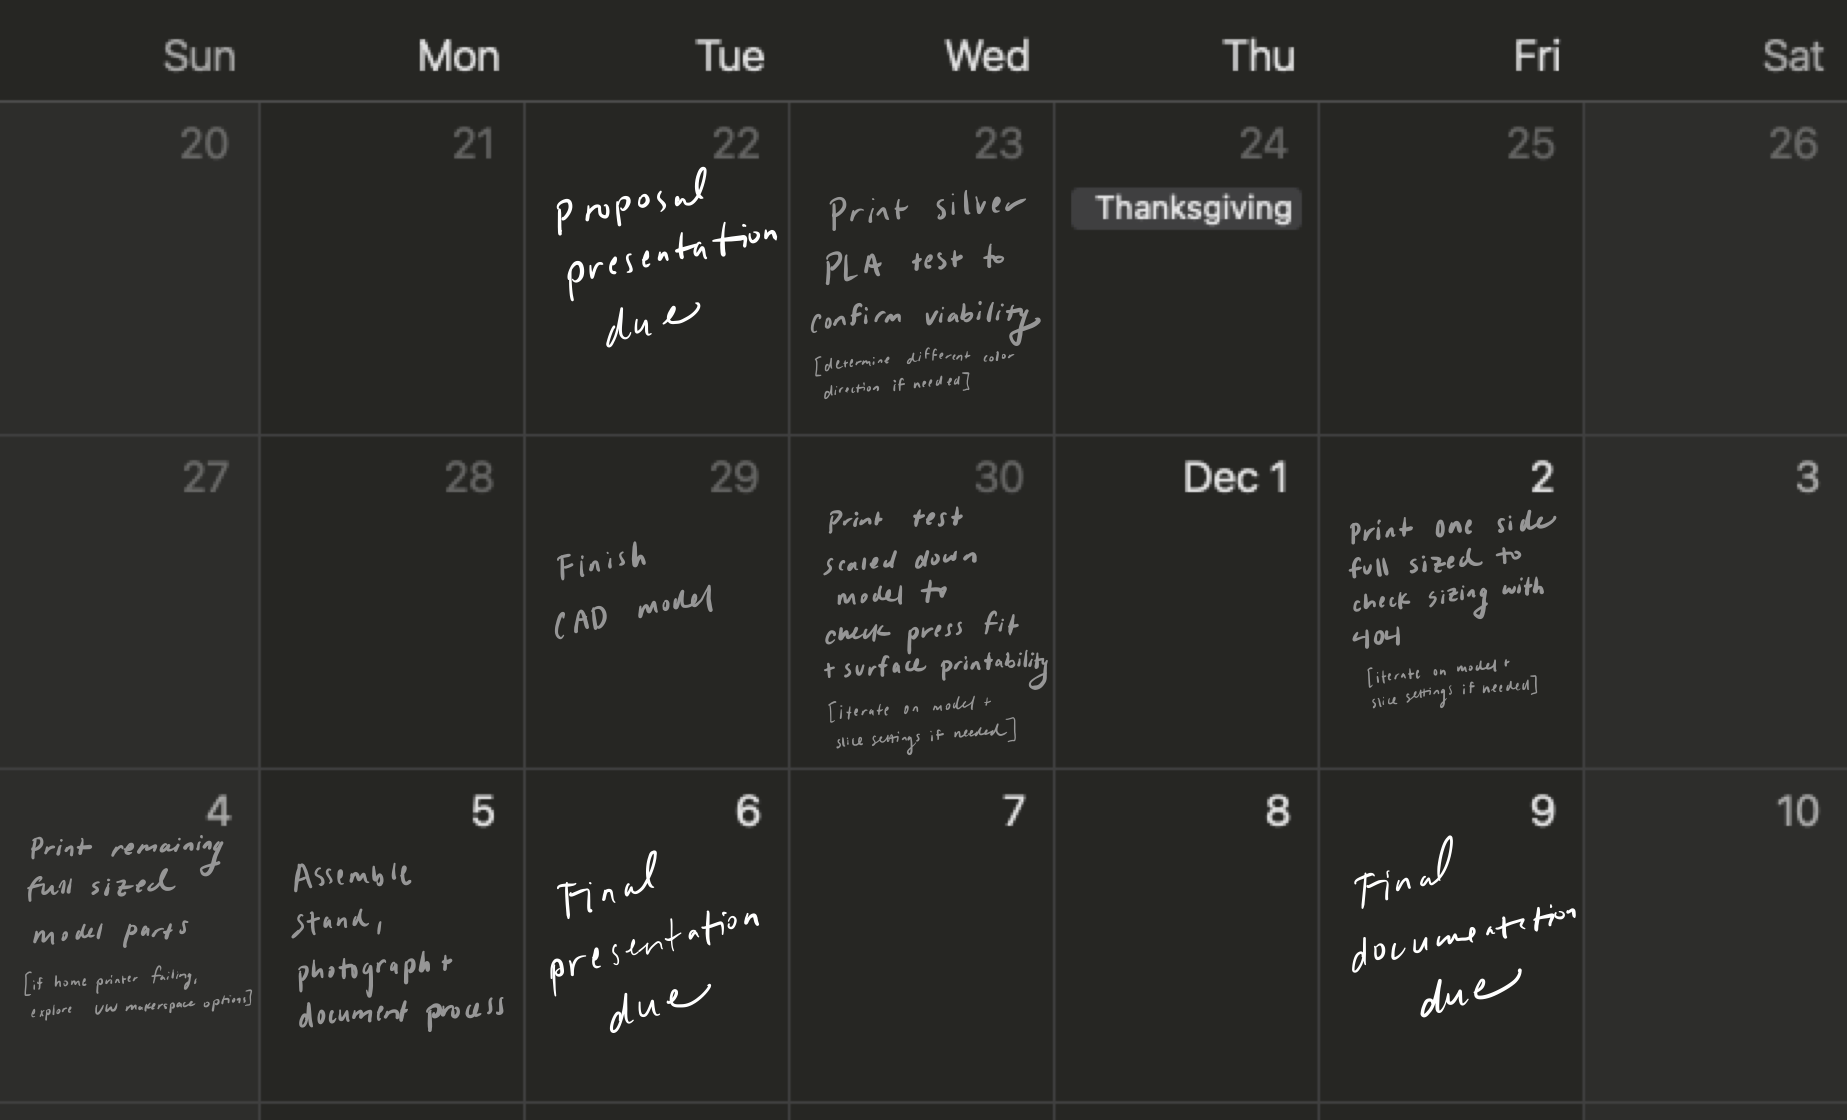 Sun Mon Tue Wed Thu Fri Sat
20 21 22 23 24 25 26
Proposal
presentation
due
Print silver
PLA test to
confirm viability
[determine different color
direction if needed]
Thanksgiving
27 28 29 30 Dec 1 2 3
Finish
CAD model
Print test
scaled down
model to
check press fit
+ surface printability
[iterate on model +
slice settings if needed]
Print one side
full sized to
check sizing with
404
[iterate on model +
slice settings if needed]
4 5 6 7 8 9 10
Print remaining
full sized
model parts
[if home printer failing,
explore UW makerspace options]
Assemble
stand,
photograph +
document process
Final
presentation
due
Final
documentation
due